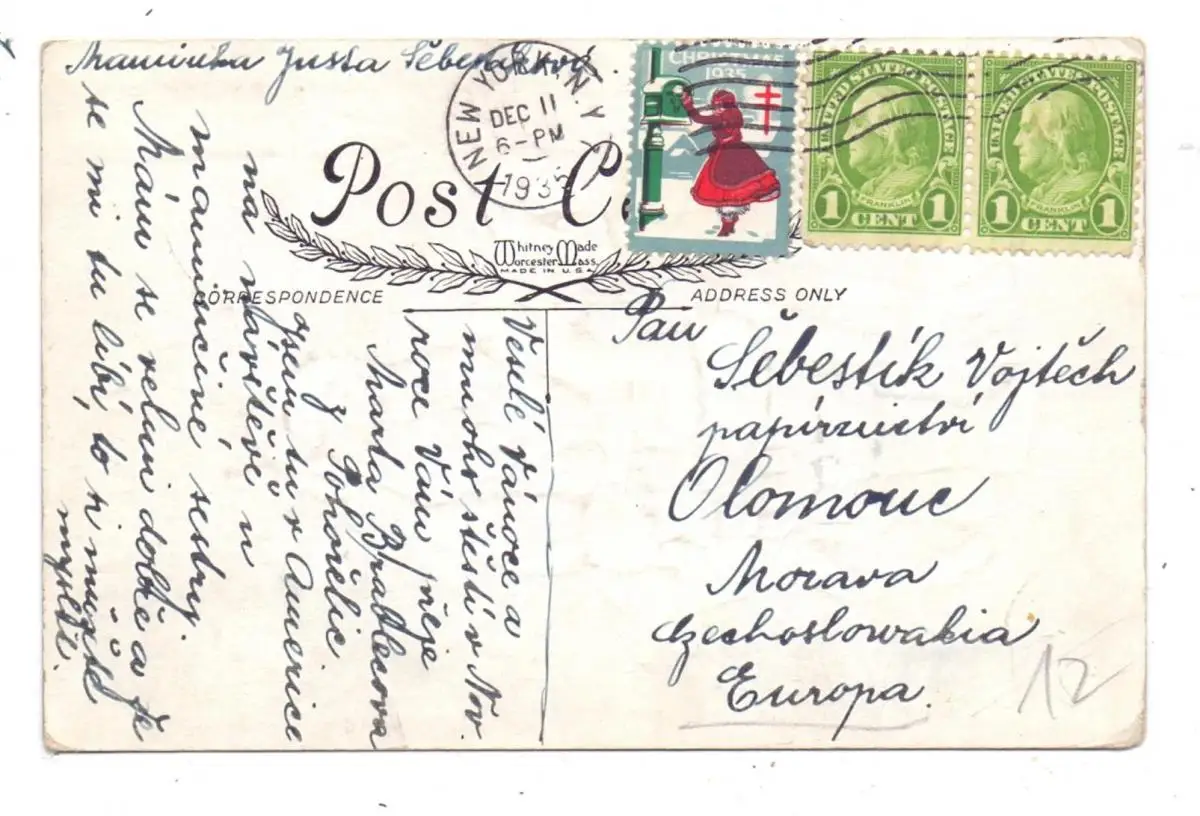 Maminka Justa Šebestíková.
NEW YORK, N.Y.
DEC 11
6-PM
1935
CHRISTMAS
1935
UNITED STATES POSTAGE
FRANKLIN
1 CENT 1
UNITED STATES POSTAGE
FRANKLIN
1 CENT 1
Post
Whitney Made
Worcester, Mass.
MADE IN U.S.A.
CORRESPONDENCE
ADDRESS ONLY
Veselé vánoce a
mnoho štěstí v Nov.
roce Vám přeje
Marta Bratlecova
z Pohořelic
Jsem tu v Americe
na návštěvě u
maminčiné sestry.
Mám se velmi dobře a že
se mi tu líbí, to si můžete
myslit.
Pan
Šebestík Vojtěch
papírnictví
Olomouc
Morava
Czechoslowakia
Europa.
12